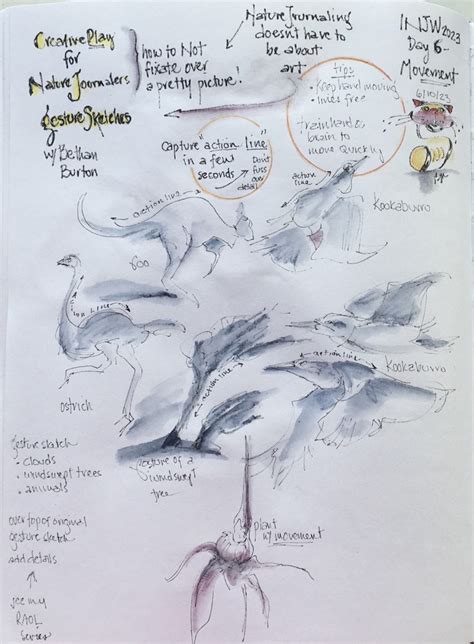 Creative Play
for
Nature Journalers
Gesture Sketches
w/Bethan
Burton
how to Not
fixate over
a pretty picture!
Nature Journaling
doesn't have to
be about
art
INJW2023
Day 6-
Movement
6/10/23
tips
- Keep hand moving
- lines free
train hand &
brain to
move quickly
Capture "action line"
in a few
seconds
Don't
fuss
over
detail
action line
Roo
action line
Kookaburra
action line
ostrich
action line
gesture of a
windswept
tree
action line
Kookaburra
gesture sketch
• clouds
• windswept trees
• animals
over top of original
gesture sketch
add details
see my
series
plant
w/ movement